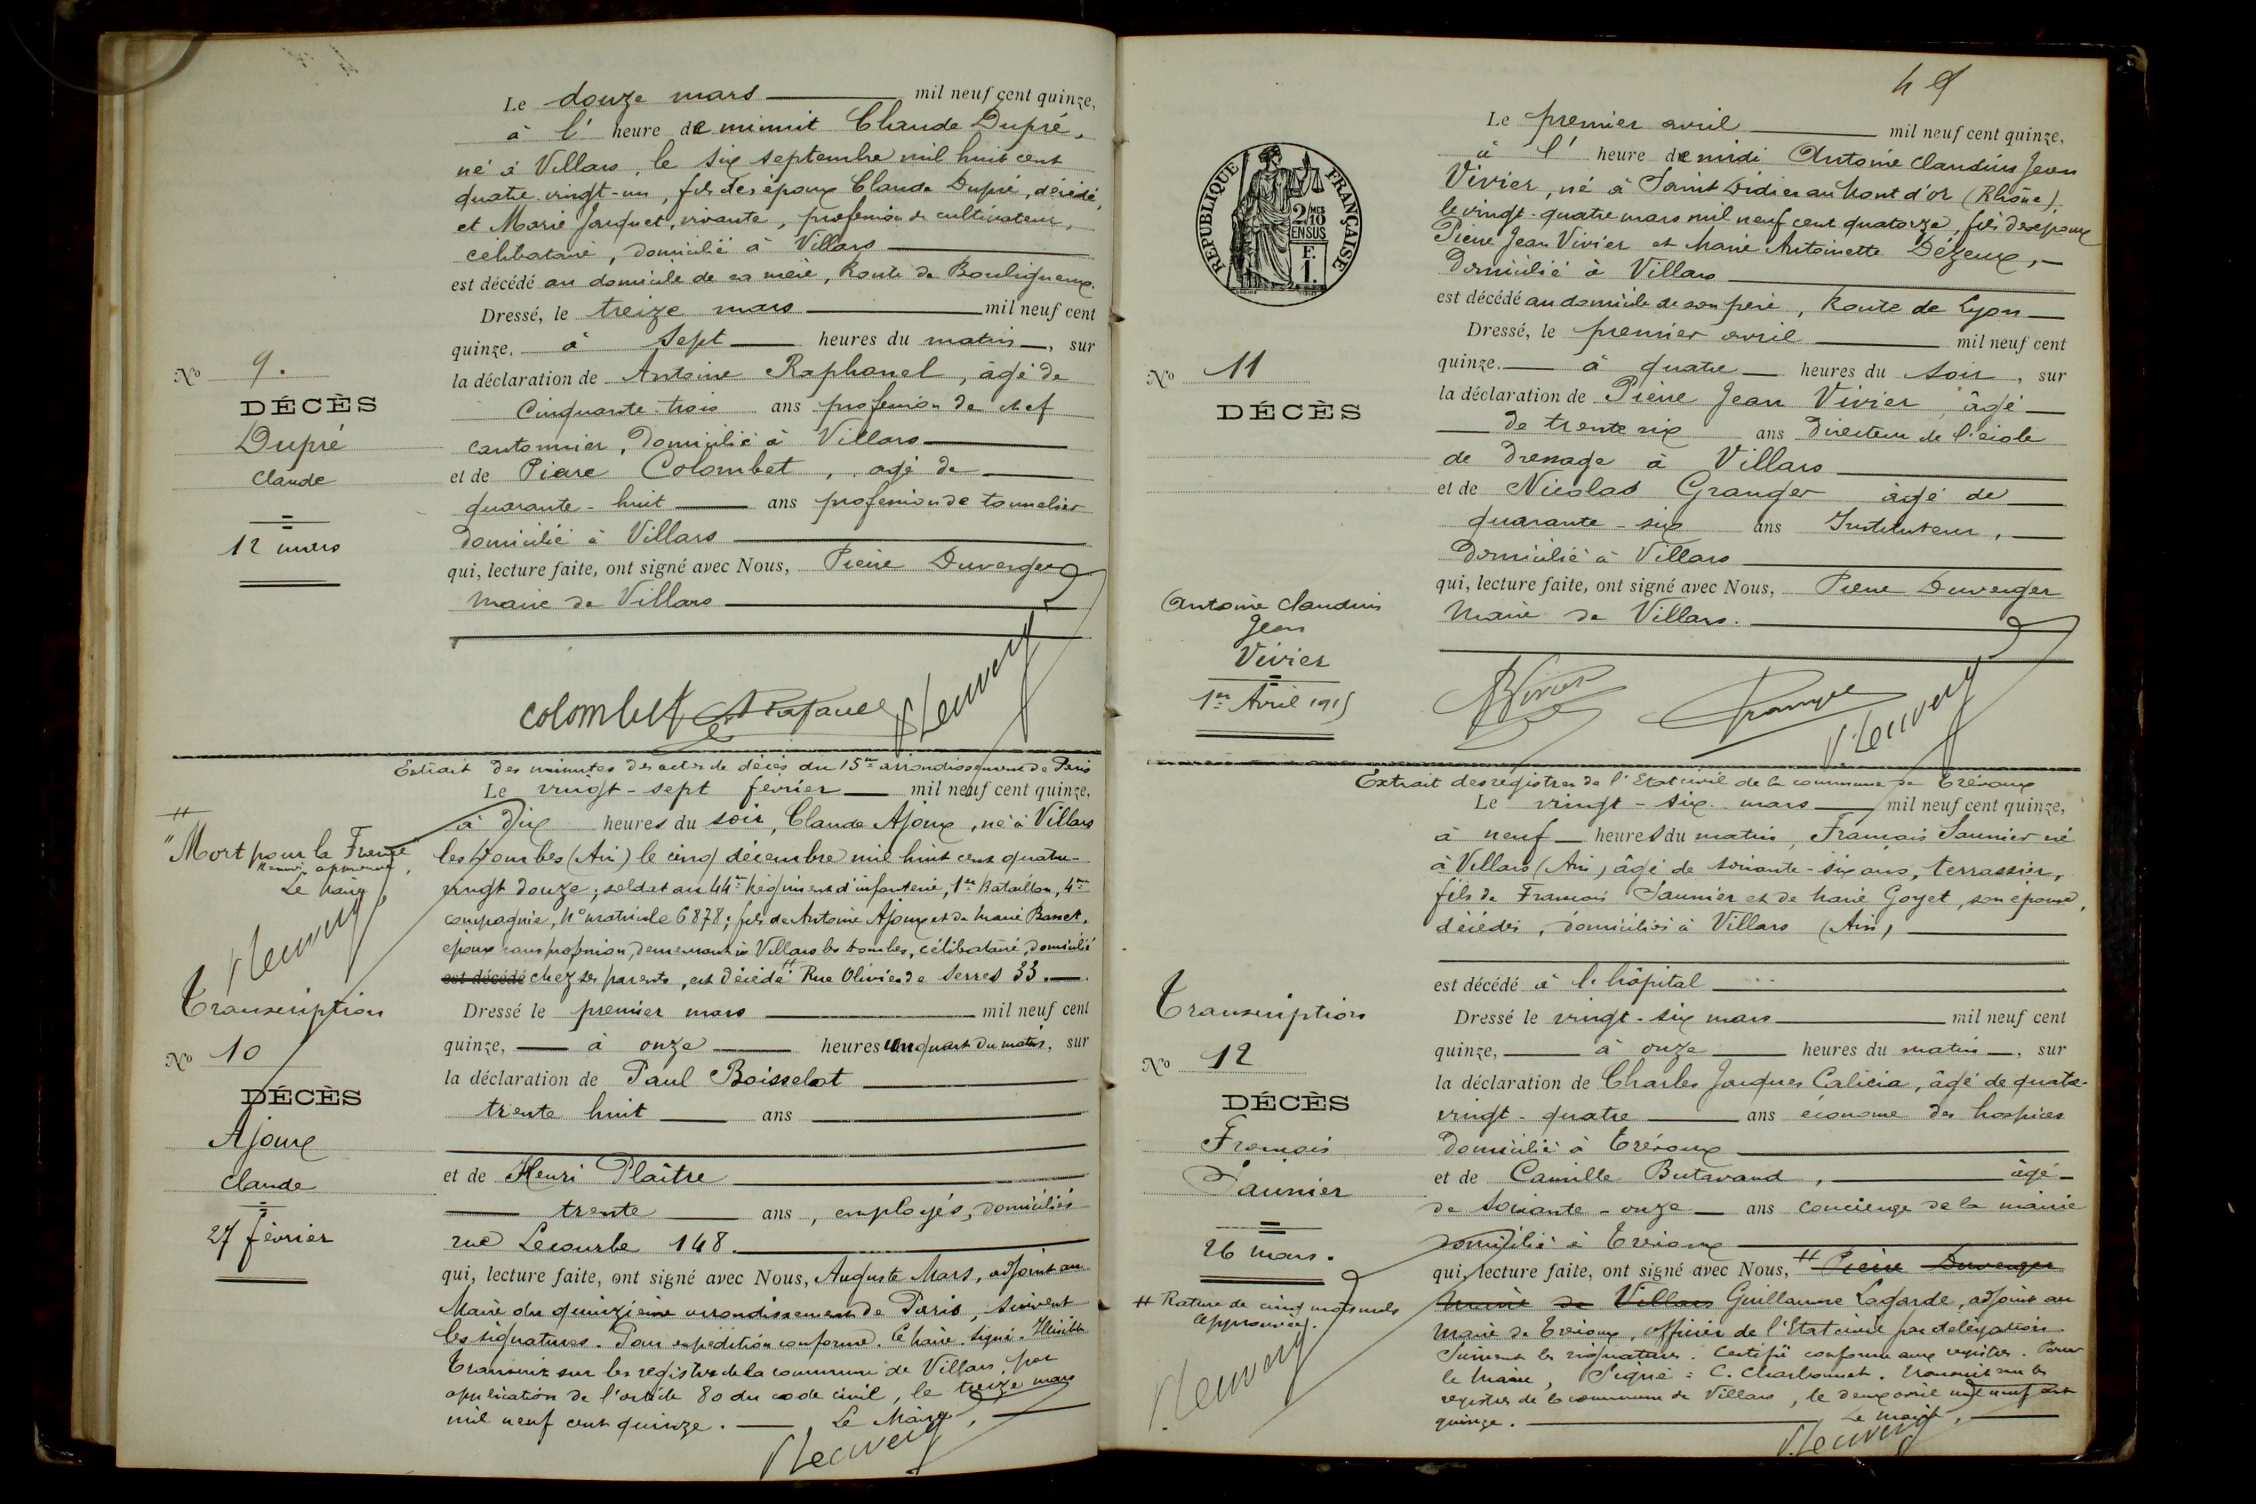 Le douze mars mil neuf cent quinze,
à l' heure de minuit Claude Dupré,
né à Villars, le six septembre mil huit cent
quatre-vingt-un, fils des époux Claude Dupré, décédé,
et Marie Jacquet, vivante, profession de cultivateur,
célibataire, domicilié à Villars
est décédé au domicile de sa mère, Route de Bouligneux.
Dressé, le treize mars mil neuf cent
quinze, à sept heures du matin, sur
la déclaration de Antoine Raphanel, âgé de
cinquante-trois ans profession de chef
cantonnier, domicilié à Villars
et de Pierre Colombet, âgé de
quarante-huit ans profession de tonnelier
domicilié à Villars
qui, lecture faite, ont signé avec Nous, Pierre Duverger
Maire de Villars
No 9.
DÉCÈS
Dupré
Claude
12 mars
colombet
Extrait des minutes des actes de décès du 15me arrondissement de Paris
Le vingt-sept février mil neuf cent quinze,
à dix heures du soir, Claude Ajoux, né à Villars
les Dombes (Ain) le cinq décembre mil huit cent quatre-
vingt douze; soldat au 44me Régiment d'infanterie, 1er Bataillon, 4me
compagnie, No matricule 6878; fils de Antoine Ajoux et de Marie Basset,
époux sans profession, demeurant à Villars les Dombes, célibataire, domicilié
est décédé chez ses parents, est décédé Rue Olivier de Serres 33.
Dressé le premier mars mil neuf cent
quinze, à onze heures un quart du matin, sur
la déclaration de Paul Boisselot
trente huit ans
et de Henri Plaître
trente ans, employés, domiciliés
rue Lecourbe 148.
qui, lecture faite, ont signé avec Nous, Auguste Mars, adjoint au
Maire du quinzième arrondissement de Paris, suivent
les signatures. Pour expédition conforme. Le Maire. Signé. Illisible
Transcrit sur les registres de la commune de Villars, par
application de l'article 80 du code civil, le treize mars
mil neuf cent quinze. Le Maire,
"Mort pour la France
Renvoi approuvé,
Le Maire
Transcription
No 10
DÉCÈS
Ajoux
Claude
27 février
RÉPUBLIQUE FRANÇAISE
2/10
EN SUS
F.
1.
Le premier avril mil neuf cent quinze,
à l' heure de midi Antoine Claudius Jean
Vivier, né à Saint Didier au Mont d'or (Rhône)
le vingt-quatre mars mil neuf cent quatorze, fils des époux
Pierre Jean Vivier et Marie Antoinette Dézeux,
Domicilié à Villars
est décédé au domicile de son père, Route de Lyon
Dressé, le premier avril mil neuf cent
quinze. à quatre heures du soir, sur
la déclaration de Pierre Jean Vivier âgé
de trente six ans Directeur de l'école
de Dressage à Villars
et de Nicolas Granger âgé de
quarante-six ans Instituteur,
Domicilié à Villars
qui, lecture faite, ont signé avec Nous, Pierre Duverger
Maire de Villars.
No 11
DÉCÈS
Antoine Claudius
Jean
Vivier
1er Avril 1915
Extrait des registres de l'Etat civil de la commune de Trévoux
Le vingt-six mars mil neuf cent quinze,
à neuf heures du matin, François Saunier né
à Villars (Ain) âgé de soixante-six ans, terrassier,
fils de François Saunier et de Marie Goyet, son épouse,
décédés, domiciliés à Villars (Ain)
est décédé à l'hôpital
Dressé le vingt-six mars mil neuf cent
quinze, à onze heures du matin, sur
la déclaration de Charles Jacques Calicia, âgé de quatre-
vingt-quatre ans économe des hospices
Domicilié à Trévoux
et de Camille Butavand, âgé
de soixante-onze ans concierge de la mairie
domicilié à Trévoux
qui, lecture faite, ont signé avec Nous, Pierre Duverger
Maire de Villars Guillaume Lagarde, adjoint au
Maire de Trévoux, officier de l'Etat civil par délégation
Suivent les signatures. Certifié conforme aux registres. Pour
le Maire, Signé: C. Charbonnet. Transcrit sur les
registres de la commune de Villars, le deux avril mil neuf cent
quinze. Le Maire,
Transcription
No 12
DÉCÈS
François
Saunier
26 mars.
Rature de cinq mots nuls
approuvée.